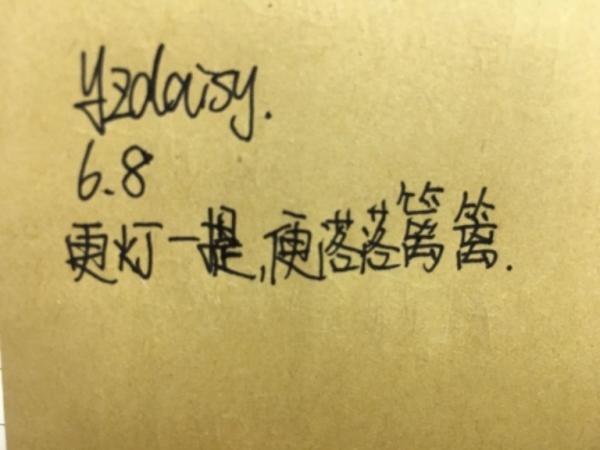 yzdaisy.
6.8
更灯一提,便落落篱篱.